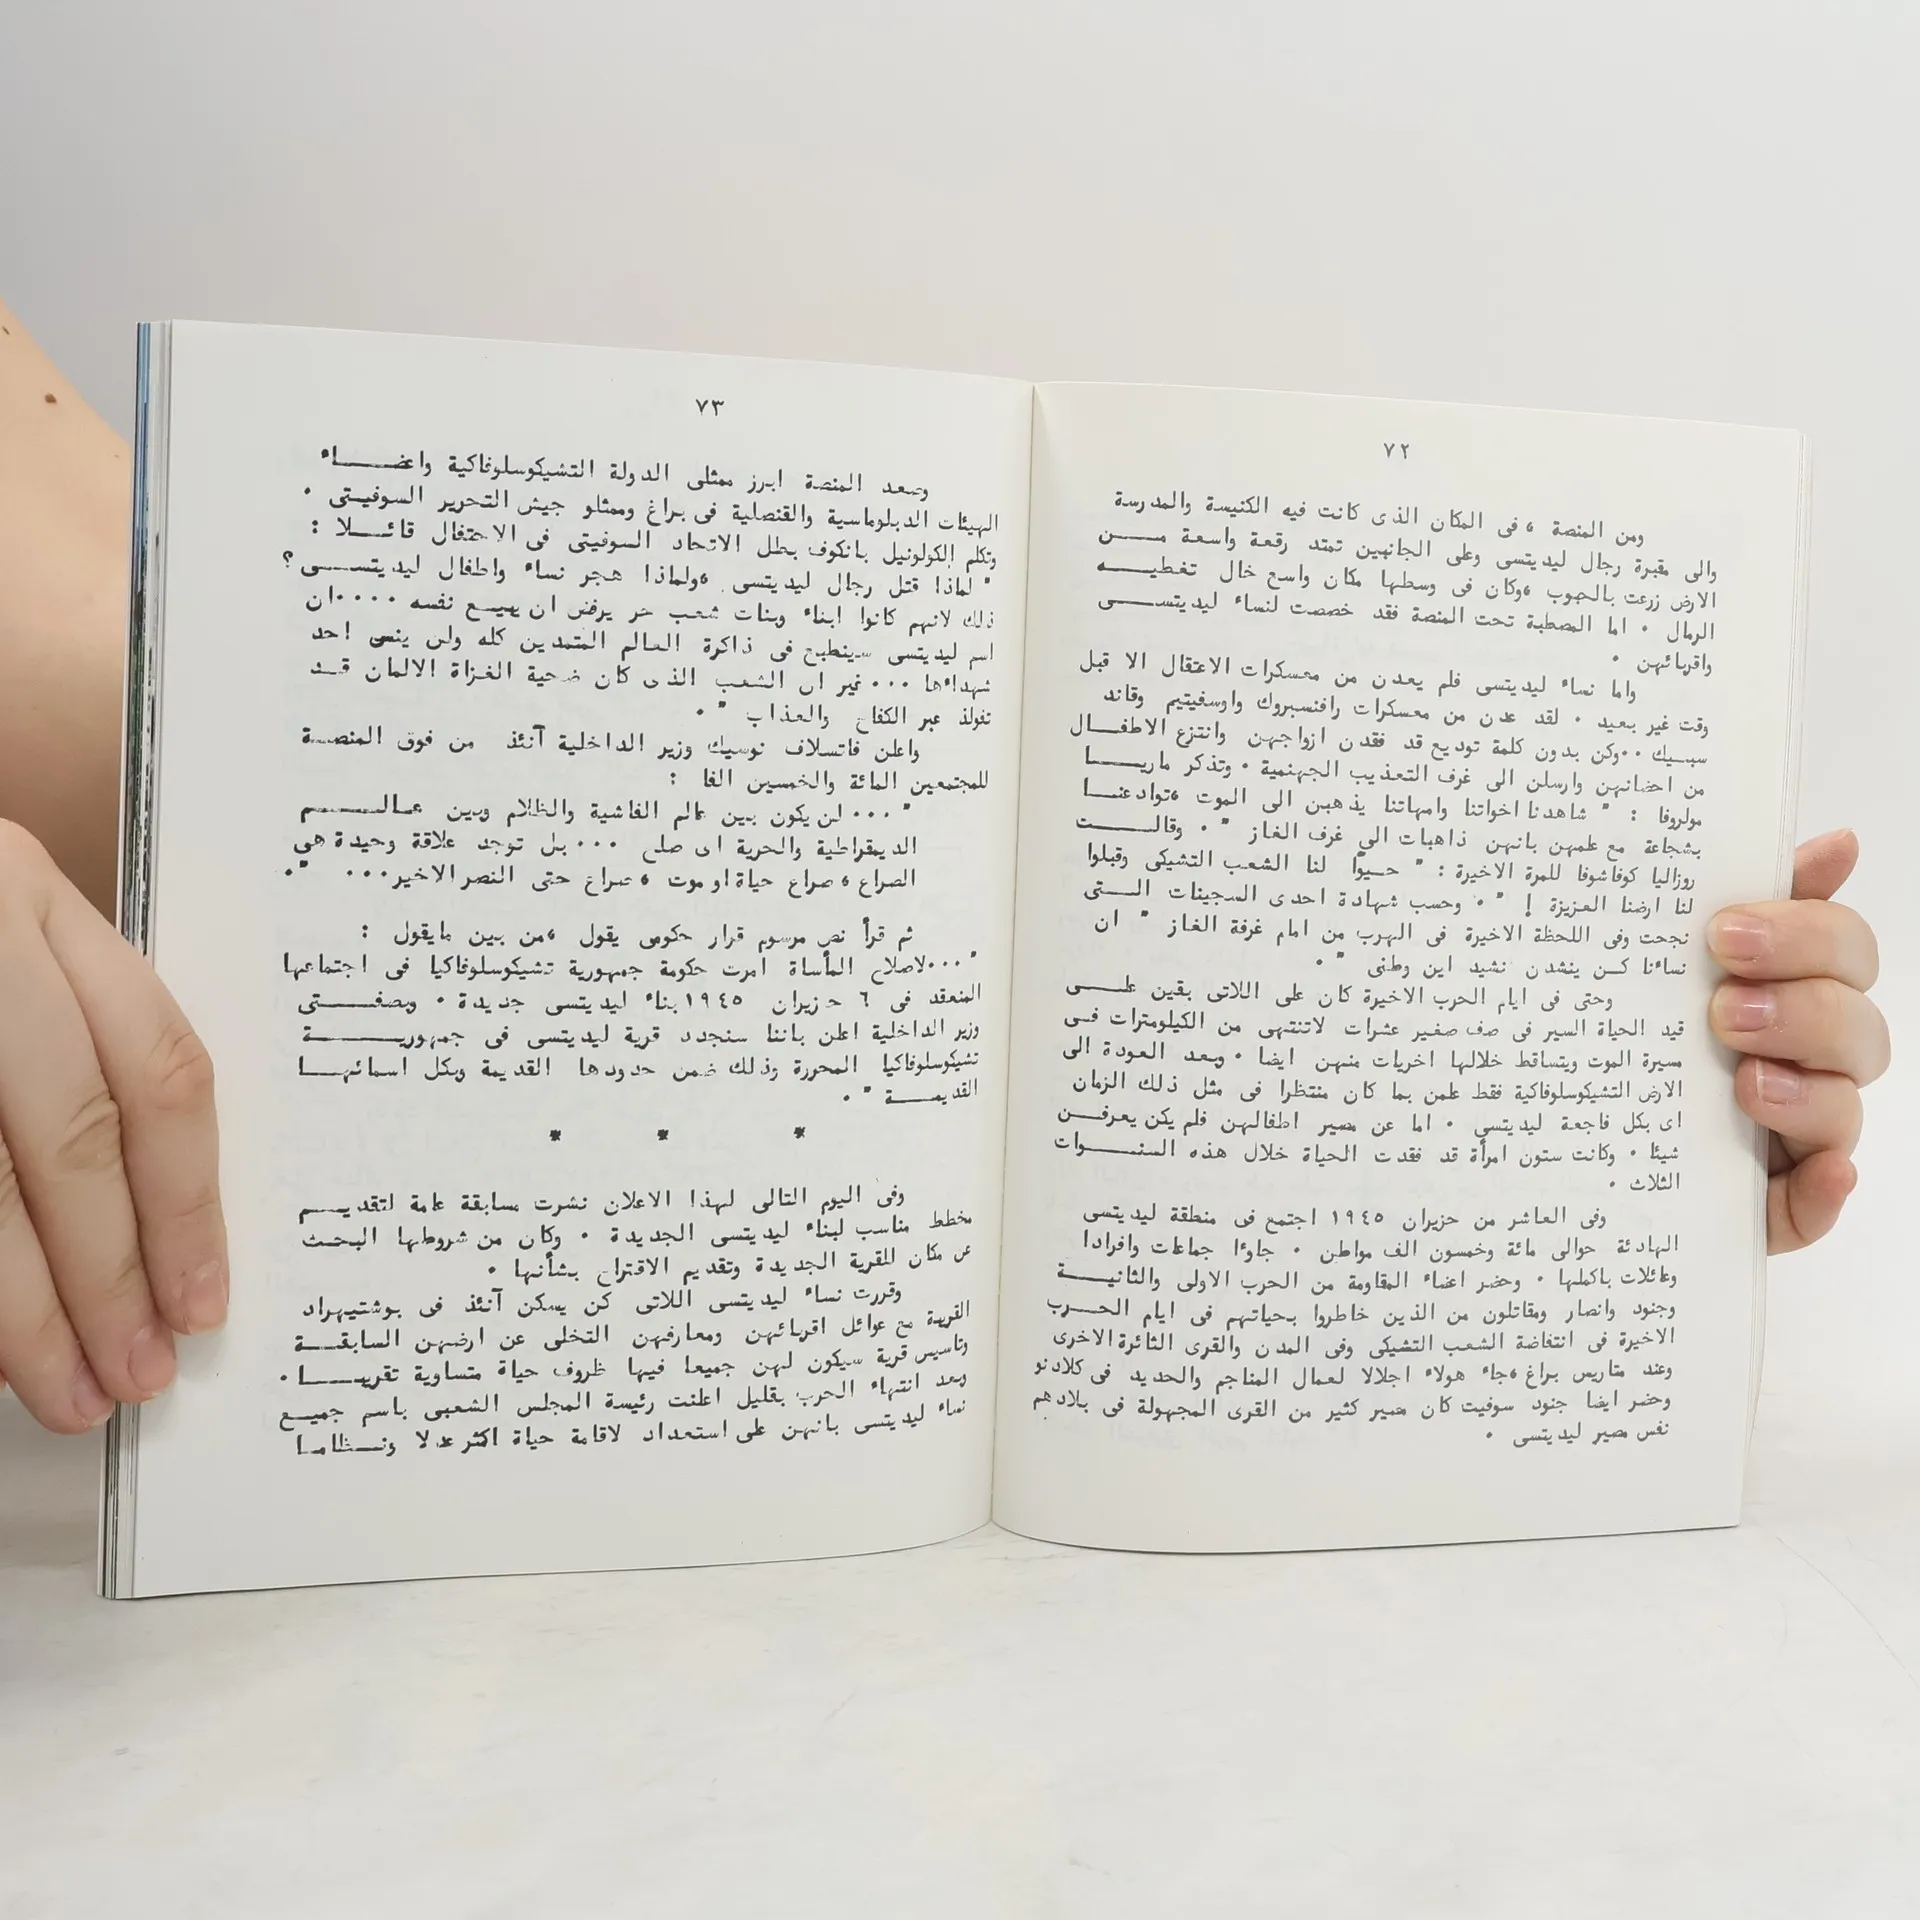 ٧٢
ومن المنصة ، فى المكان الذى كانت فيه الكنيسة والمدرسة
والى مقبرة رجال ليديتسى وعلى الجانبين تمتد رقعة واسعة مـــن
الارض زرعت بالحبوب ،وكان فى وسطها مكان واسع خال تغطيـــه
الرمال . اما المصطبة تحت المنصة فقد خصصت لنساء ليديتســـى
واقربائهن .
واما نساء ليديتسى فلم يعدن من معسكرات الاعتقال الا قبل
وقت غير بعيد . لقد عدن من معسكرات رافنسبروك واوسفيتيم وقاند
سبيك ..وكن بدون كلمة توديع قد فقدن ازواجهن وانتزع الاطفـــال
من احضانهن وارسلن الى غرف التعذيب الجهنمية . وتذكر ماريـــا
مولروفا : " شاهدنا اخواتنا وامهاتنا يذهبن الى الموت ،توادعنـــا
بشجاعة مع علمهن بانهن ذاهبات الى غرف الغاز " . وقالـــت
روزاليا كوفاشوفا للمرة الاخيرة : " حيوّا لنا الشعب التشيكى وقبلوا
لنا ارضنا العزيزة ! " . وحسب شهادة احدى السجينات الـــتى
نجحت وفى اللحظة الاخيرة فى الهرب من امام غرفة الغاز " ان
نساءنا كـن ينشدن نشيد اين وطنى " .
وحتى فى ايام الحرب الاخيرة كان على اللاتى بقين علـــى
قيد الحياة السير فى صف صغير عشرات لاتنتهى من الكيلومترات فـى
مسيرة الموت ويتساقط خلالها اخريات منهن ايضا . وبعد العودة الى
الارض التشيكوسلوفاكية فقط علمن بما كان منتظرا فى مثل ذلك الزمان
اى بكل فاجعة ليديتسى . اما عن مصير اطفالهن فلم يكن يعرفـــن
شيئا . وكانت ستون امرأة قد فقدت الحياة خلال هذه السنـــوات
الثلاث .
وفى العاشر من حزيران ١٩٤٥ اجتمع فى منطقة ليديتسى
الهادئة حوالى مائة وخمسون الف مواطن . جاؤا جماعات وافرادا
وعائلات باكملها . وحضر اعضاء المقاومة من الحرب الاولى والثانيـــة
وجنود وانصار ومقاتلون من الذين خاطروا بحياتهم فى ايام الحـــرب
الاخيرة فى انتفاضة الشعب التشيكى وفى المدن والقرى الثائرة الاخرى
وعند متاريس براغ ،جاء هولاء اجلالا لعمال المناجم والحديد فى كلادنو
وحضر ايضا جنود سوفيت كان مصير كثير من القرى المجهولة فى بلادهم
نفس مصير ليديتسى .
٧٣
وصعد المنصة ابرز ممثلى الدولة التشيكوسلوفاكية واعضـــاء
الهيئات الدبلوماسية والقنصلية فى براغ وممثلو جيش التحرير السوفيتى .
وتكلم الكولونيل بانكوف بطل الاتحاد السوفيتى فى الاحتفال قائـــلا :
" لماذا قتل رجال ليديتسى ،ولماذا هجر نساء واطفال ليديتســـى؟
ذلك لانهم كانوا ابناء وبنات شعب حر يرفض ان يبيـع نفسه ....ان
اسم ليديتسى سينطبع فى ذاكرة العالم المتمدين كله ولن ينسى احد
شهداءها ... غير ان الشعب الذى كان ضحية الغزاة الالمان قـد
تفولذ عبر الكفاح والعذاب " .
واعلن فاتسلاف نوسيك وزير الداخلية آنئذ من فوق المنصـة
للمجتمعين المائة والخمسين الفا :
" ... لن يكون بين عالم الفاشية والظلام وبين عـالـــم
الديمقراطية والحرية اى صلح ... بل توجد علاقة وحيدة هى
الصراع ، صراع حياة او موت ،صراع حتى النصر الاخير... ".
ثم قرأ نص مرسوم قرار حكومى يقول ،من بين مايقول :
" ...لاصلاح المأساة امرت حكومة جمهورية تشيكوسلوفاكيا فى اجتماعها
المنعقد فى ٦ حزيران ١٩٤٥ بناء ليديتسى جديدة . وبصفـــتى
وزير الداخلية اعلن باننا سنجدد قرية ليديتسى فى جمهوريـــة
تشيكوسلوفاكيا المحررة وذلك ضمن حدودها القديمة وبكل اسمائهـــا
القديمـــة " .
* * *
وفى اليوم التالى لهذا الاعلان نشرت مسابقة عامة لتقديـــم
مخطط مناسب لبناء ليديتسى الجديدة . وكان من شروطها البحث
عن مكان للقرية الجديدة وتقديم الاقتراح بشأنها .
وقررت نساء ليديتسى اللاتى كن يسكن آنئذ فى بوشتيهراد
القريبة مع عوائل اقربائهن ومعارفهن التخلى عن ارضهن السابقـــة
وتاسيس قرية سيكون لهن جميعا فيها ظروف حياة متساوية تقريبـــا .
وبعد انتهاء الحرب بقليل اعلنت رئيسة المجلس الشعبى باسم جميـــع
نساء ليديتسى بانهن على استعداد لاقامة حياة اكثر عدلا ونـــظاما